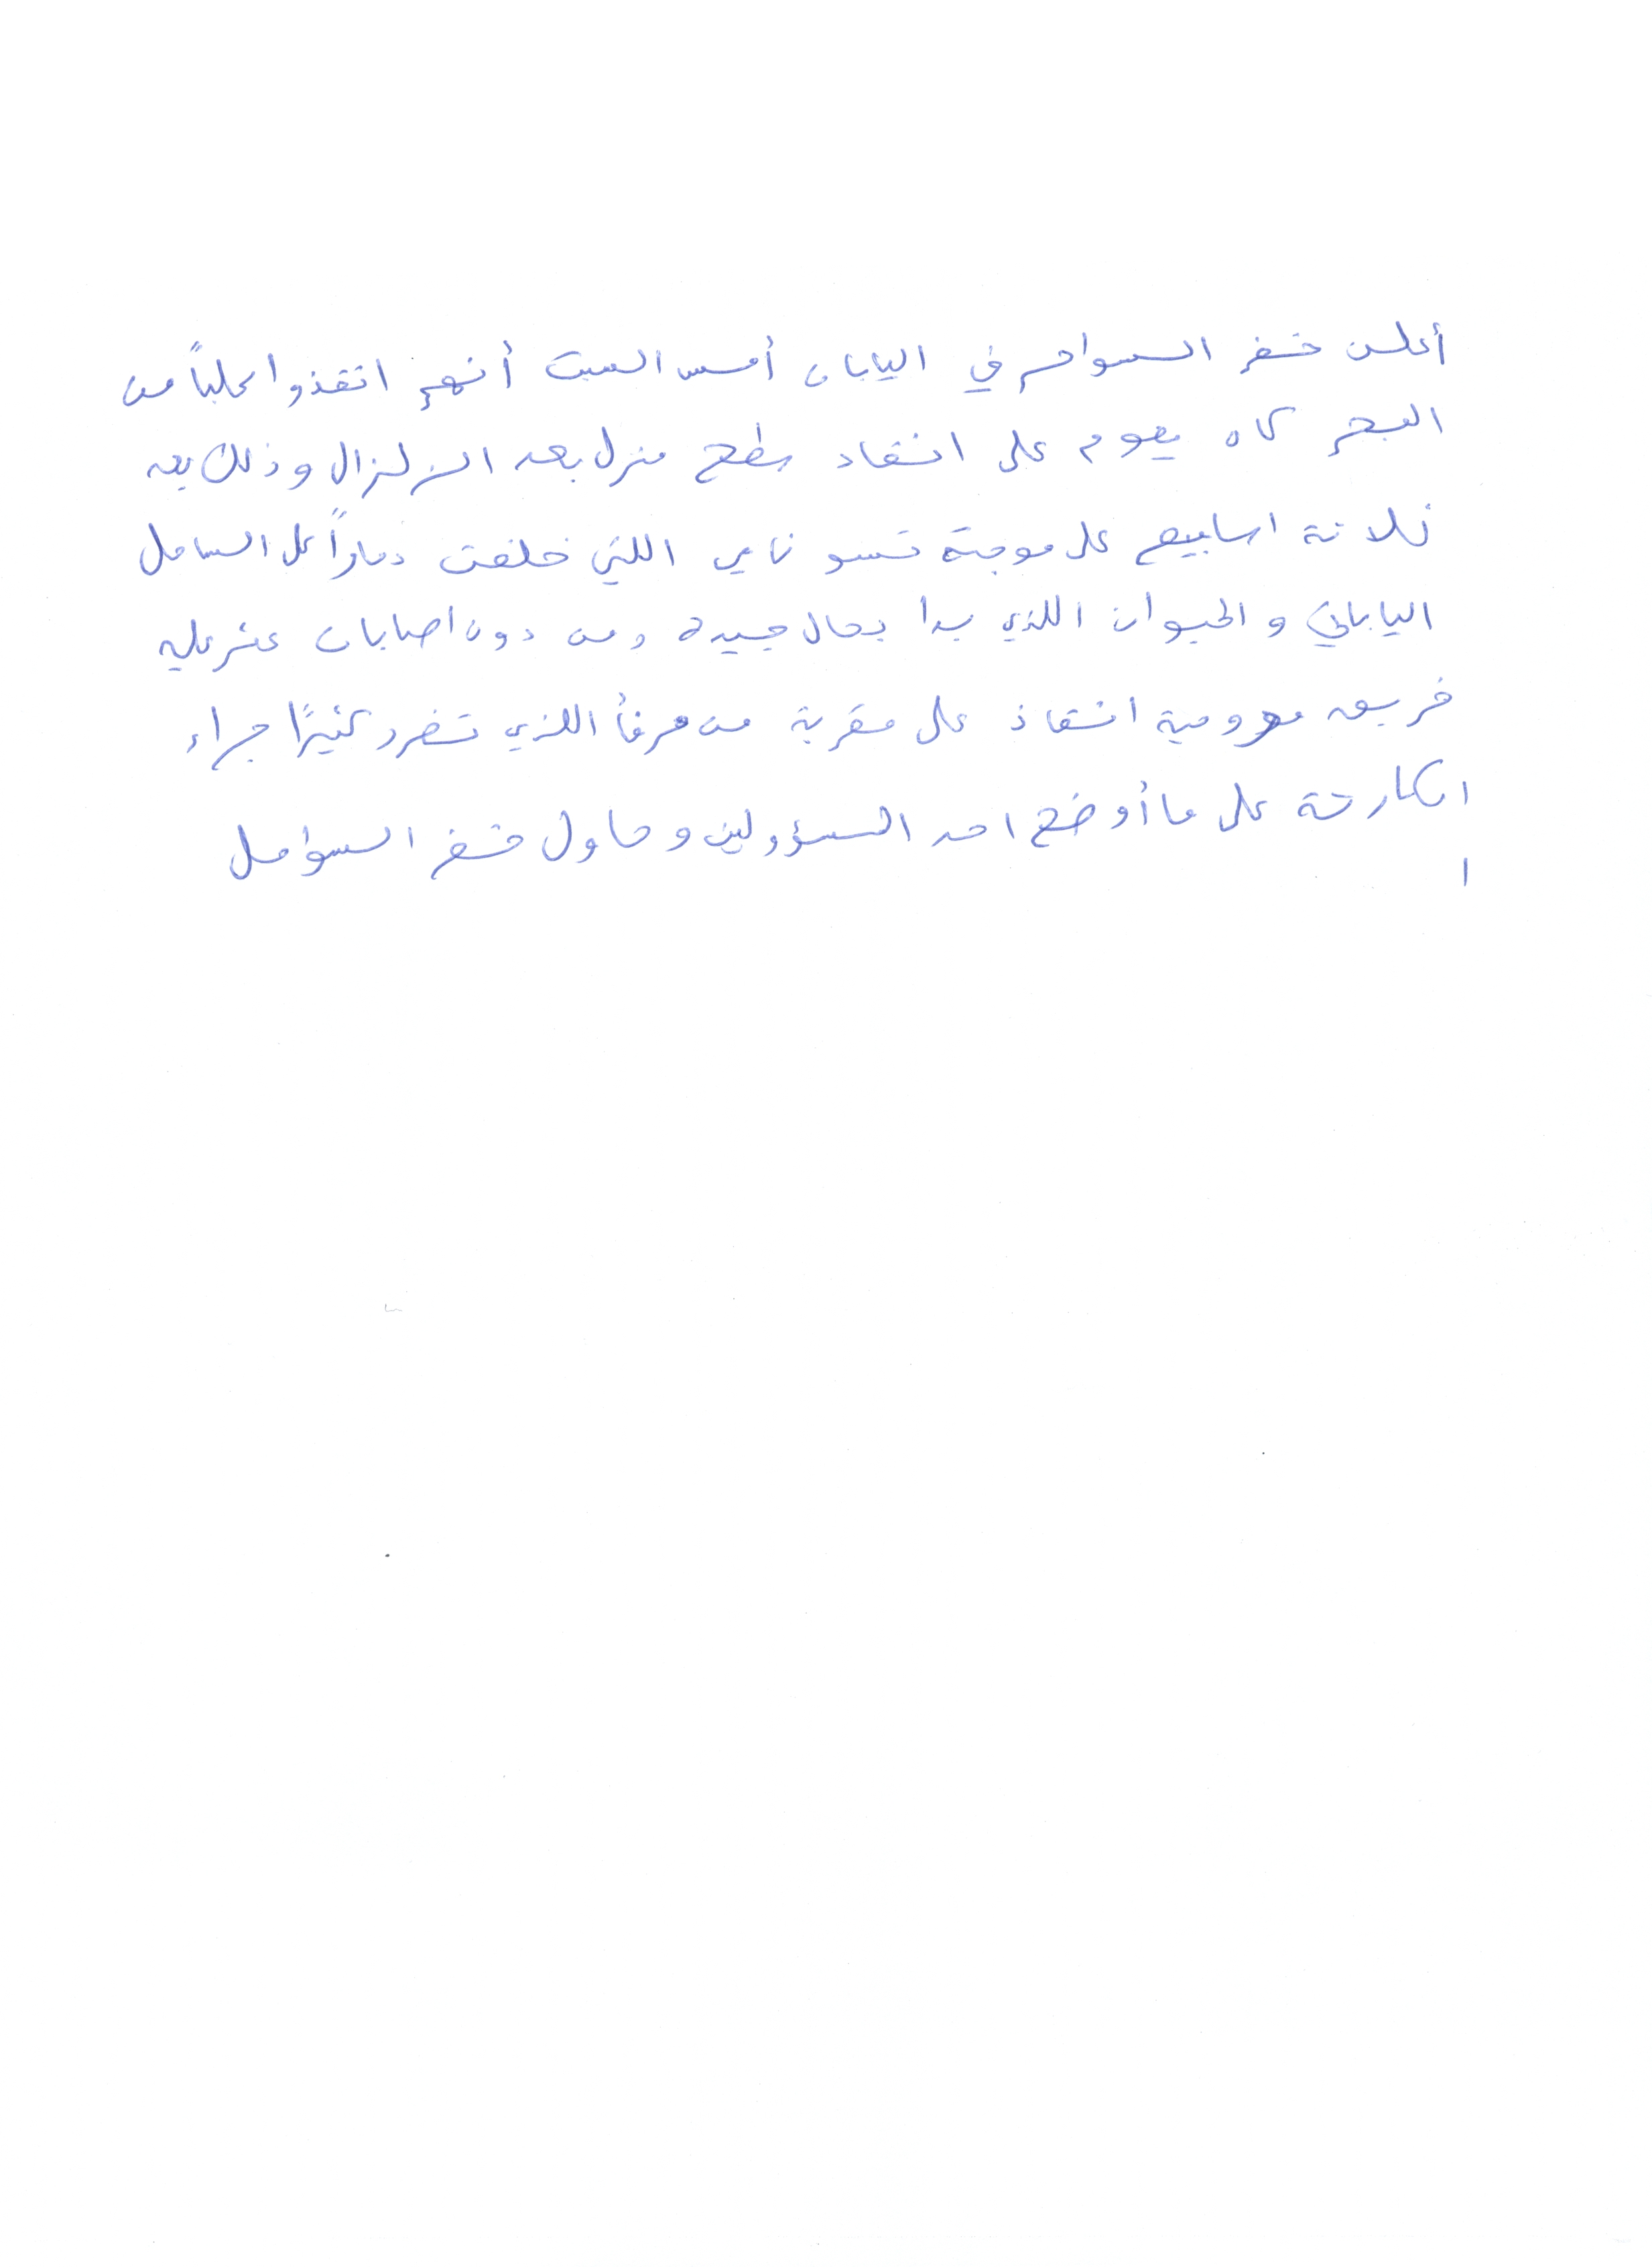 أعلن خفر السواحر في اليابان أمس السبت أنهم انقذوا كلباً من
البحر كان يعوم على انقاد سطح منزل بعد الزلزال وذلك بعد
ثلاثة اسابيع على موجة تسونامي اللتي خلفت دماراً على الساحل
الياباني والحيوان اللذي بدا بحال جيدة ومن دون اصابات عثر عليه
فريق مروحية انقاذ على مقربة من مرفأ اللذي تضرر كثيرًا جراء
الكارثة على ما أوضح احد المسؤولين وحاول خفر السواحل
ا